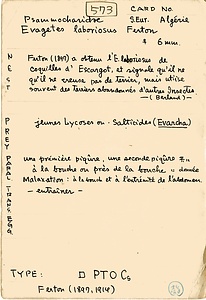 573 CARD NO.
Psammocharidae SEUR. Algérie
Evagetes laboriosus Ferton
♀ 6 mm.
NEST
Ferton (1897) a obtenu l'E. laboriosus de
coquilles d'Escargot, et signale qu'il ne
qu'il ne creuse pas de terrier, mais utilise
souvent des terriers abandonnés d'autres Insectes
— (Berland) —
PREY
jeunes Lycoses ou Salticides (Evarcha)
PARAL. TRANS.
une première piqûre, une seconde piqûre
à la bouche ou près de la bouche donnée
Malaxation : à la bout et à l'extrémité de l'abdomen
— entraîner —
TYPE: □ PTO C₅
Ferton (1897, 1914)